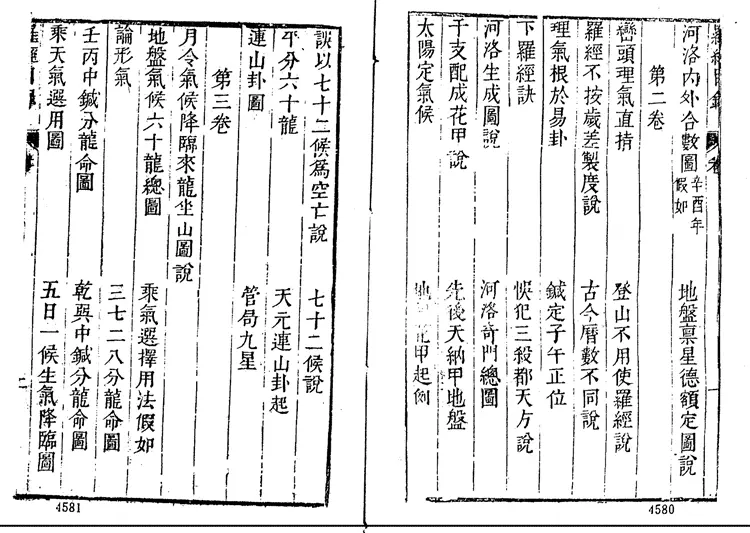 河洛內外合數圖 辛酉年假如
地盤稟星德額定圖說
第二卷
巒頭理氣直揹
登山不用使羅經說
羅經不按歲差製度說
古今曆數不同說
理氣根於易卦
鍼定子午正位
下羅經訣
悞犯三殺都天方說
河洛生成圖說
河洛奇門總圖
干支配成花甲說
先後天納甲地盤
太陽定氣候
花甲起例
4580
誤以七十二候爲空亡說
七十二候說
平分六十龍
天元連山卦起
連山卦圖
管局九星
第三卷
月令氣候降臨來龍坐山圖說
地盤氣候六十龍總圖
乘氣選擇用法假如
論形氣
三七二八分龍命圖
壬丙中鍼分龍命圖
乾巽中鍼分龍命圖
乘天氣選用圖
五日一候生氣降臨圖
二
4581